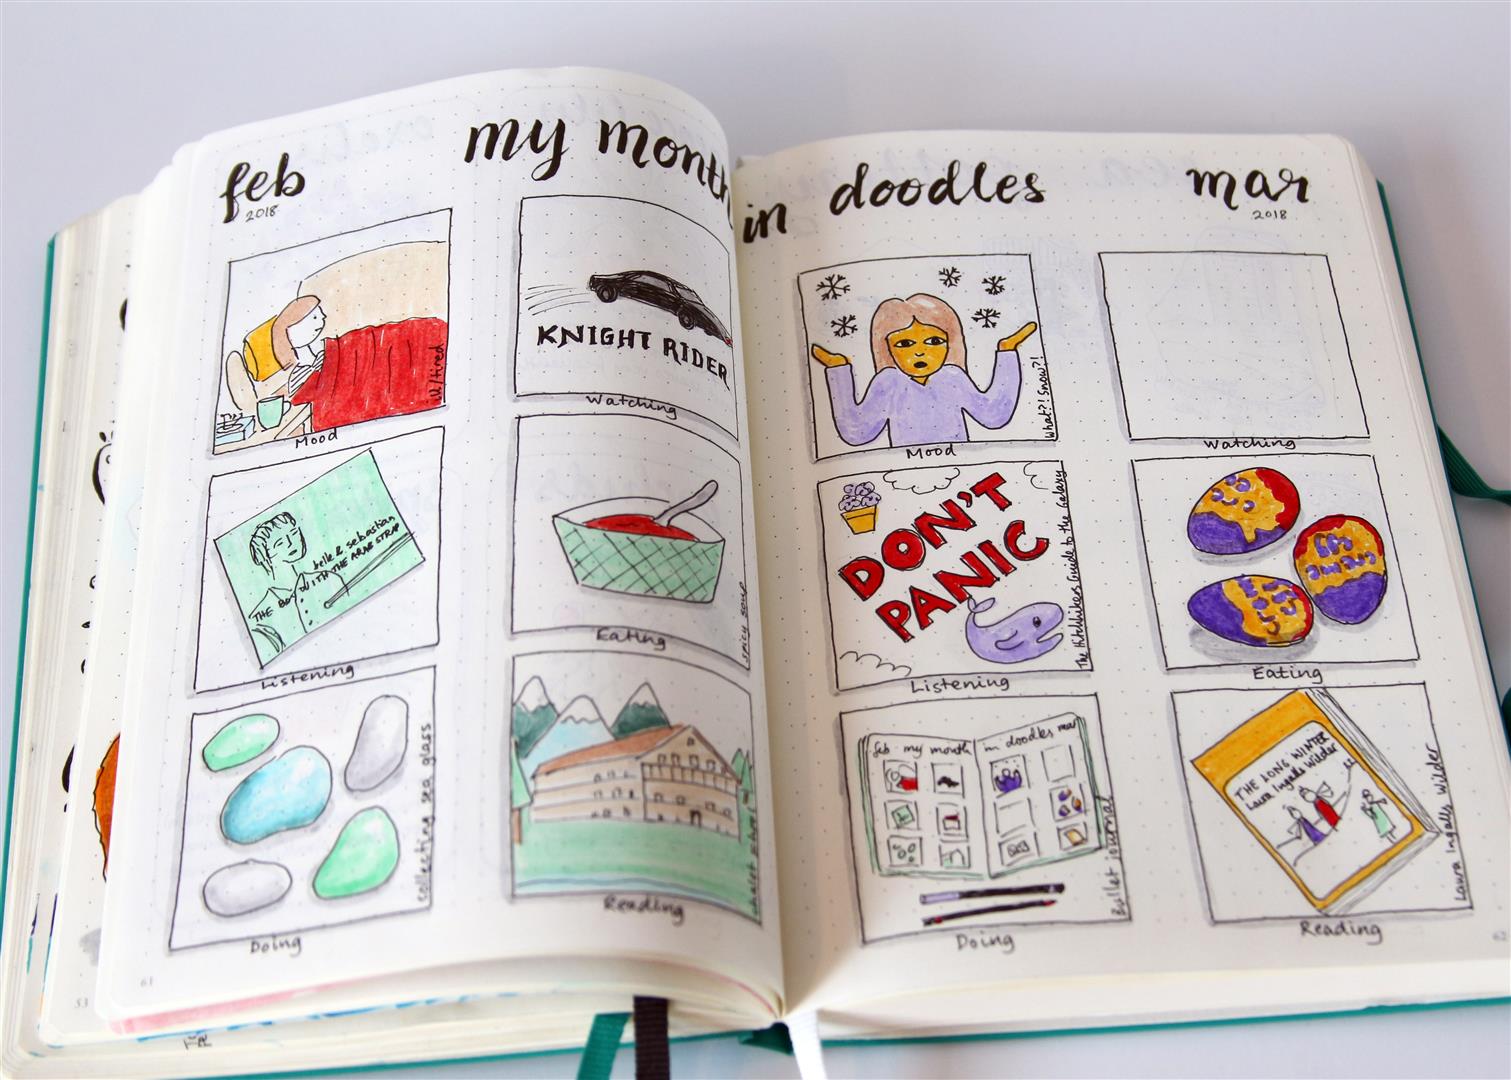 feb
2018
my month
ill/tired
Mood
KNIGHT RIDER
Watching
belle & sebastian
THE BOY WITH THE ARAB STRAP
Listening
spicy soup
Eating
collecting sea glass
Doing
Reading
61
53
in doodles
mar
2018
What?! Snow?!
Mood
Watching
DON'T
PANIC
The Hitchhikers Guide to the Galaxy
Listening
Eating
feb my month in doodles mar
Bullet journal
Doing
THE LONG WINTER
Laura Ingalls Wilder
Laura Ingalls Wilder
Reading
62